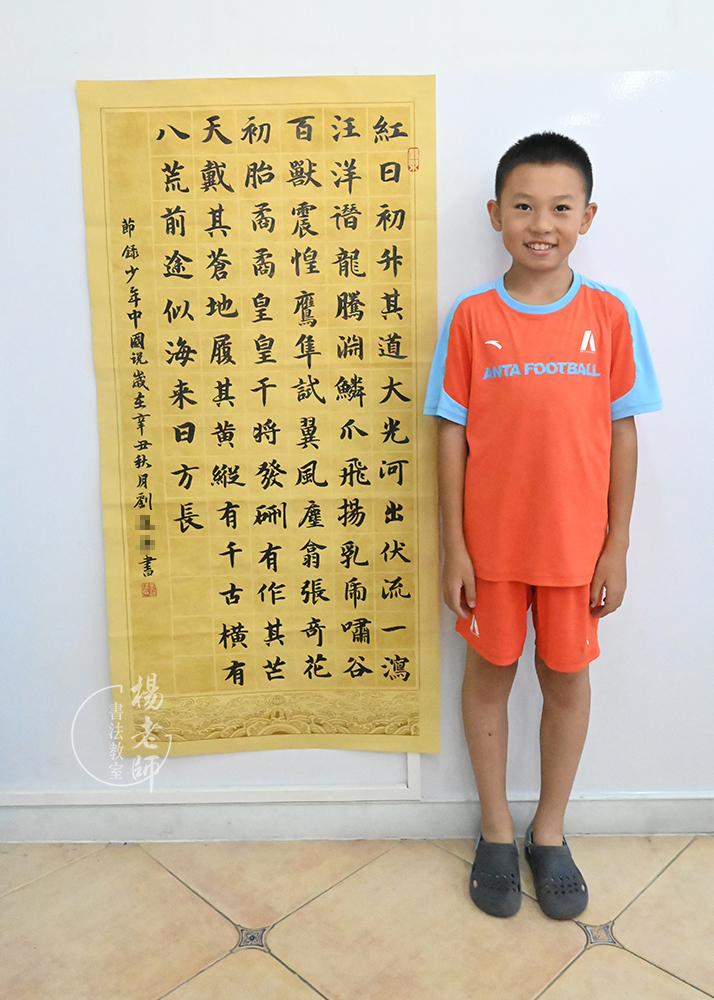 紅日初升其道大光河出伏流一瀉
汪洋潛龍騰淵鱗爪飛揚乳虎嘯谷
百獸震惶鷹隼試翼風塵翕張奇花
初胎矞矞皇皇干將發硎有作其芒
天戴其蒼地履其黃縱有千古橫有
八荒前途似海来日方長
節録少年中國说歲在辛丑秋月劉書
ANTA FOOTBALL
楊老師
書法教室